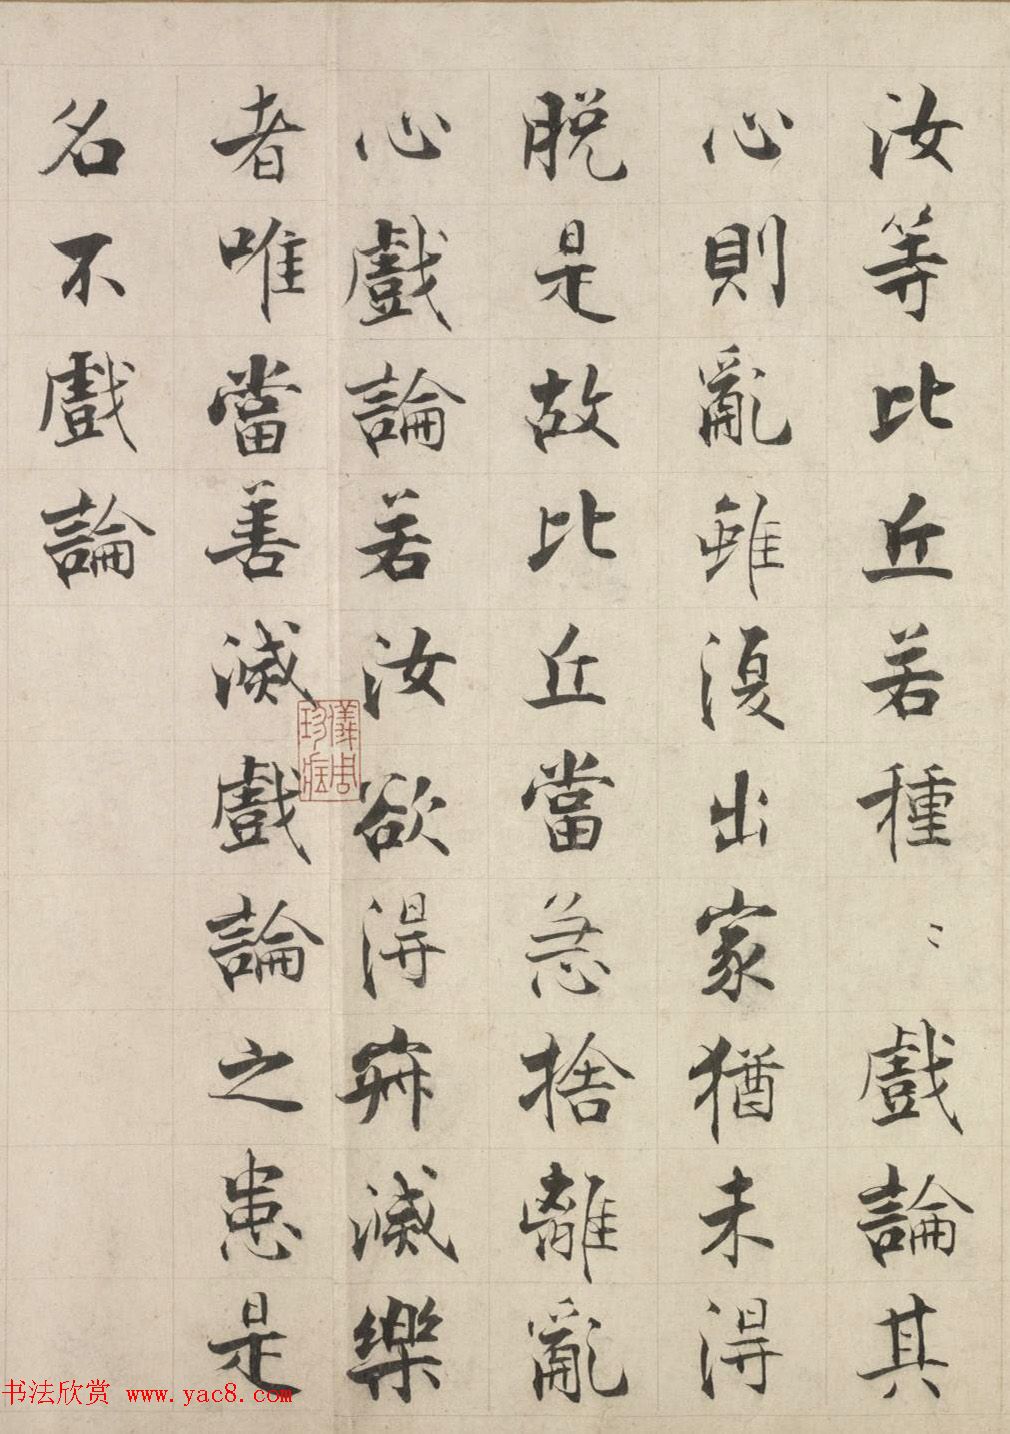 汝等比丘若種〻戲論其
心則亂雖復出家猶未淂
脫是故比丘當急捨離亂
心戲論若汝欲淂寂滅樂
者唯當善滅戲論之患是
名不戲論
儀周珍藏
书法欣赏 www.yac8.com